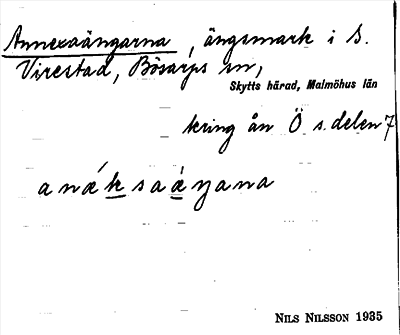 Annexaängarna, ängsmark i S.
Virestad, Bösarps sn,
Skytts härad, Malmöhus län
kring ån Ö s. delen 7
anǽksaáŋana
NILS NILSSON 1935